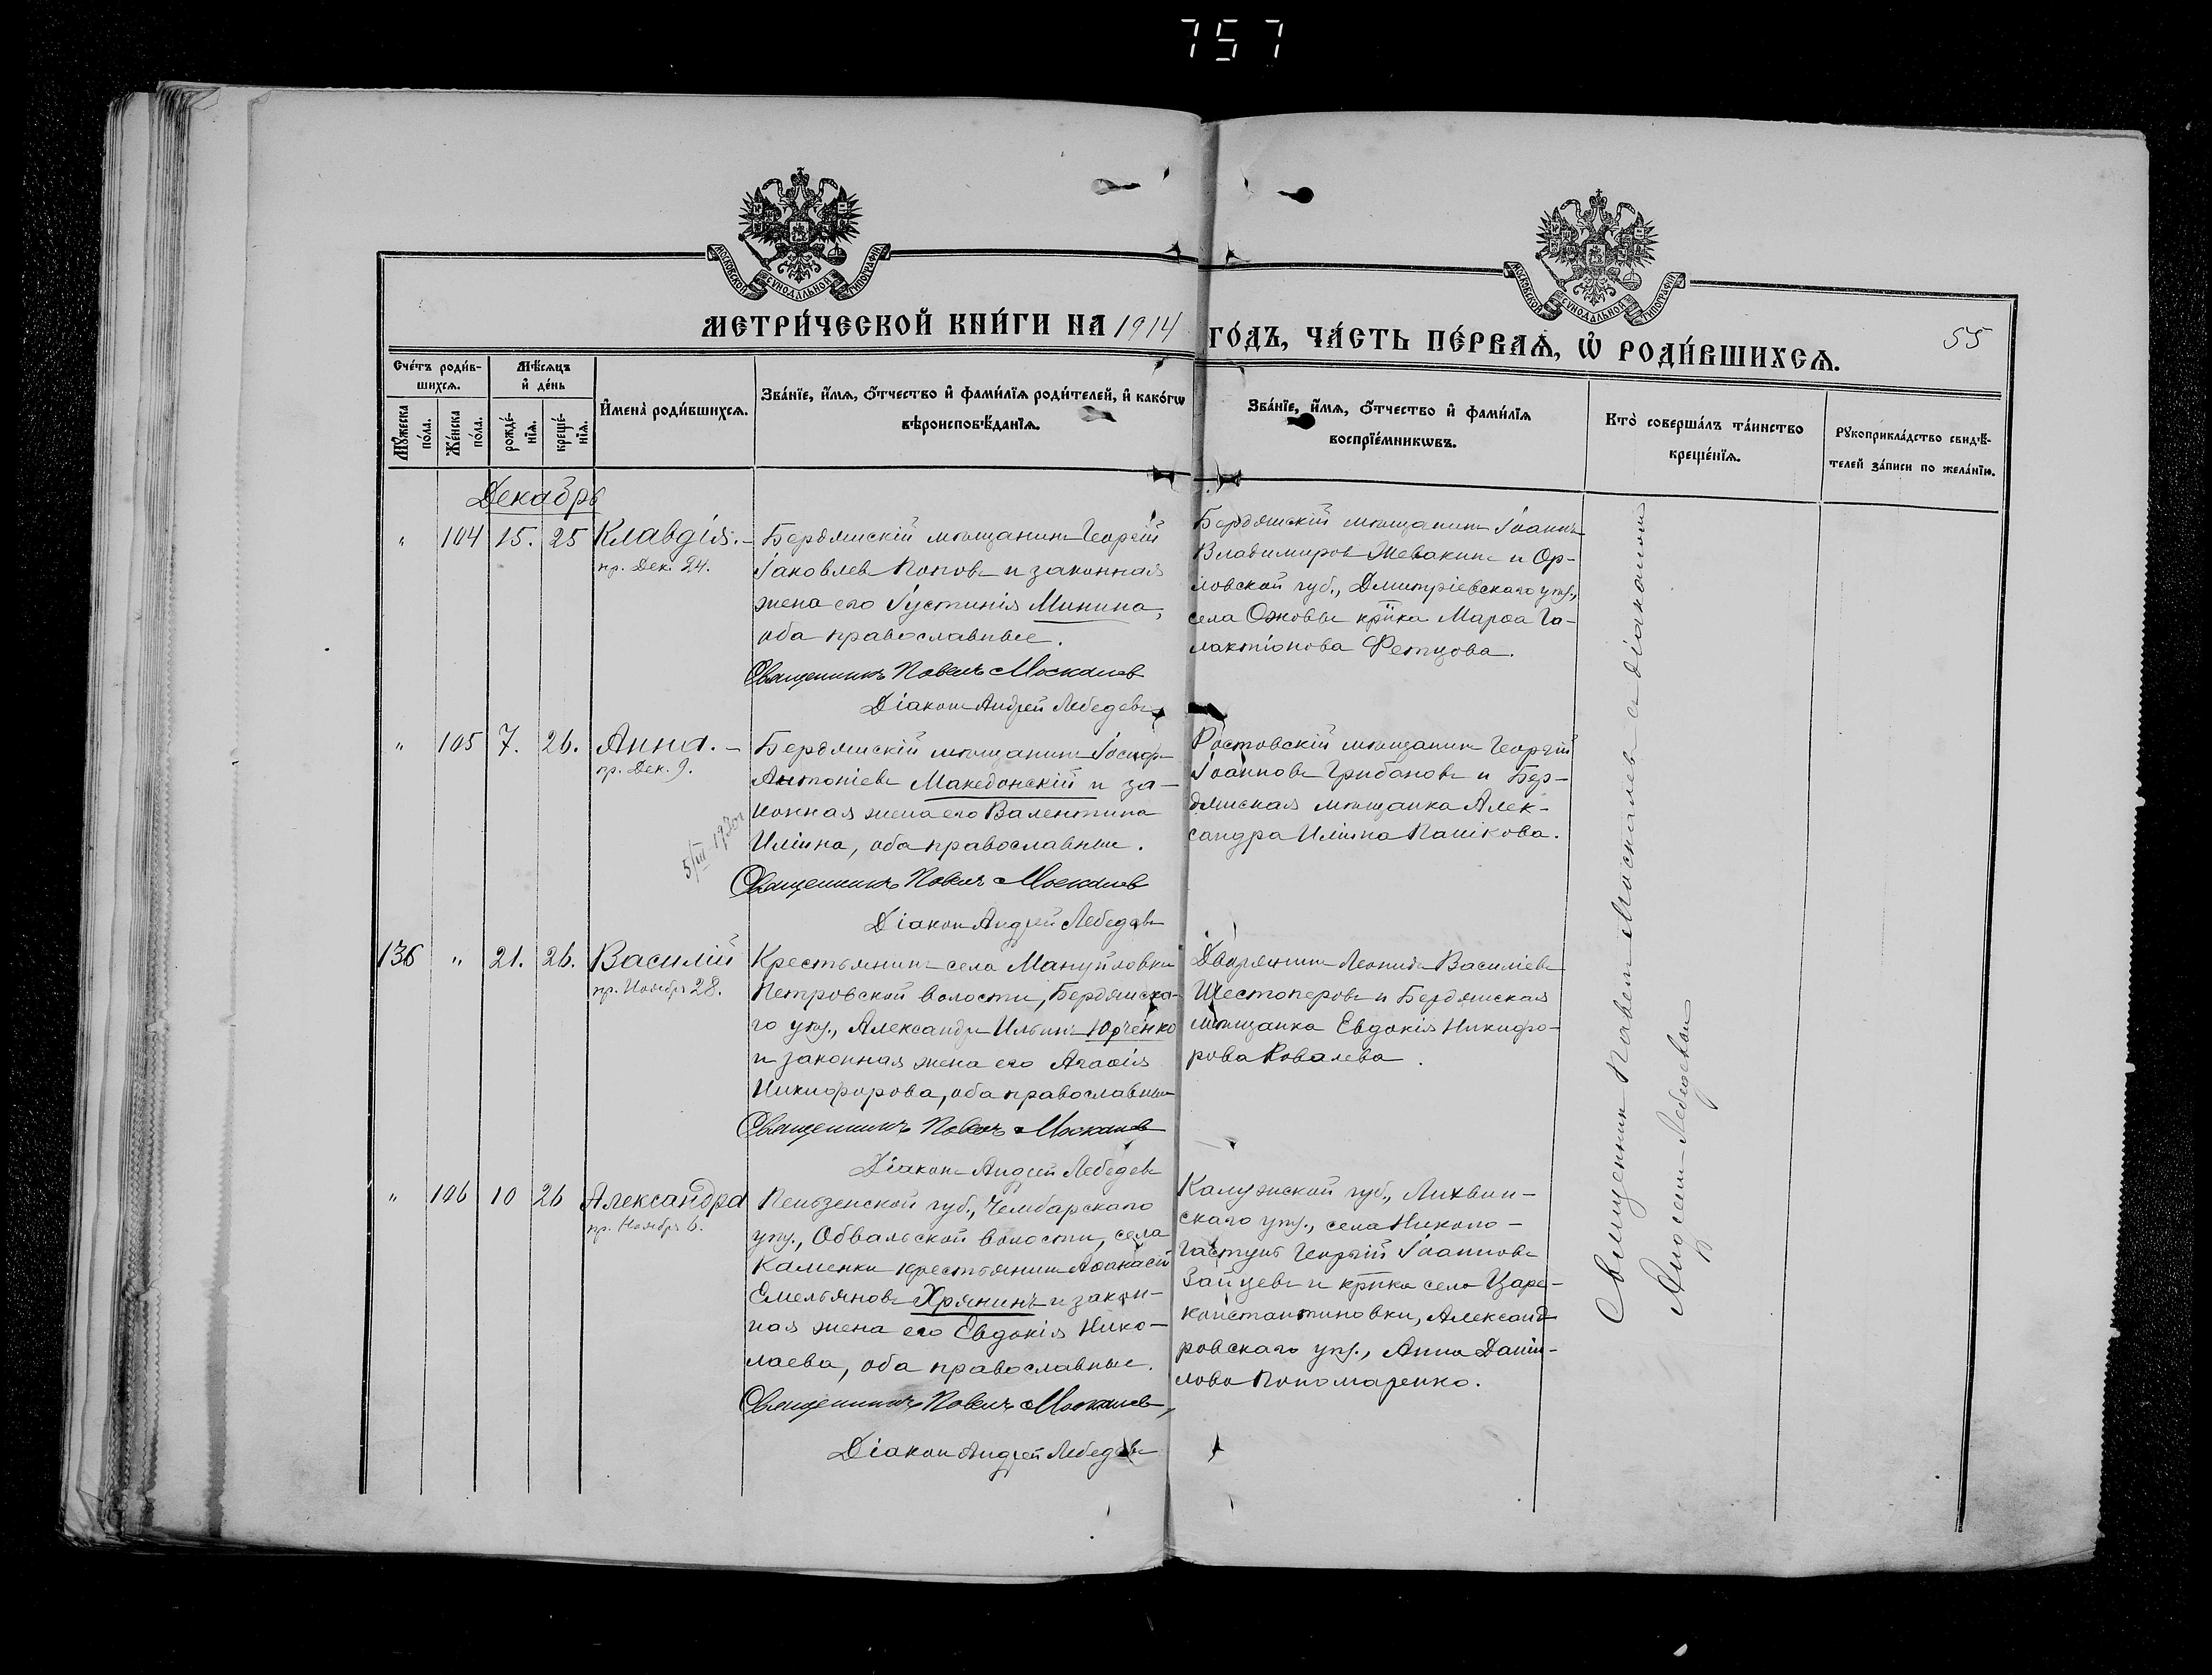 757
МОСКОВСКОЙ СѴНОДАЛЬНОЙ ТИПОГРАФІИ
МОСКОВСКОЙ СѴНОДАЛЬНОЙ ТИПОГРАФІИ
МЕТРИ́ЧЕСКОЙ КНИ́ГИ НА 1914 ГО́ДЪ, ЧА́СТЬ ПЕ́РВАѦ, Ѡ҆ РОДИ́ВШИХСѦ.
55
Сче́тъ роди́в-
шихсѧ.
Мꙋ́жеска по́ла.
Же́нска по́ла.
Мѣ́сяцъ
и҆ де́нь
рожде́-
нїѧ.
креще́-
нїѧ.
И҆мена̀ роди́вшихсѧ.
Зва́нїе, и҆́мѧ, ѻ҆́тчество и҆ фами́лїѧ роди́телей, и҆ како́гѡ
вѣроисповѣ́данїѧ.
Зва́нїе, и҆́мѧ, ѻ҆́тчество и҆ фами́лїѧ
воспрїе́мникѡвъ.
Кто̀ соверша́лъ та́инство
креще́нїѧ.
Рꙋкоприкла́дство свидѣ́-
телей за́писи по жела́нїю.
Декабрь
" 104 15. 25 Клавдія.
пр. Дек. 24.
Бердянскій мѣщанинъ Георгій
Іаковлевъ Поповъ и законная
жена его Іустинія Минина,
оба православные.
Священникъ Павелъ Москалев
Діаконъ Андрей Лебедевъ
Бердянскій мѣщанинъ Іоаннъ
Владимировъ Жевакинъ и Ор-
ловской губ., Дмитріевскаго уѣз.,
села кр͠нка Марѳа Га-
лактіонова Фетцова.
" 105 7. 26. Анна.
пр. Дек. 9.
5/III 1920
Бердянскій мѣщанинъ Іосифъ
Антоніевъ Македонскій и за-
конная жена его Валентина
Иліина, оба православные.
Священникъ Павелъ Москалев
Діаконъ Андрей Лебедевъ
Ростовскій мѣщанинъ Георгій
Іоанновъ Грибановъ и Бер-
дянская мѣщанка Алек-
сандра Иліина Пашкова.
136 " 21. 26. Василій
пр. Ноября 28.
Крестьянинъ села Мануйловки
Петровской волости, Бердянска-
го уѣз., Александръ Ильинъ Юрченко
и законная жена его Агаѳія
Никифорова, оба православные
Священникъ Павелъ Москалев
Діаконъ Андрей Лебедевъ
Дворянинъ Леонидъ Василіевъ
Шестоперовъ и Бердянская
мѣщанка Евдокія Никифо-
рова Ковалева.
" 106 10 26 Александра
пр. Ноября 6.
Пензенской губ., Чембарскаго
уѣз., Обвальской волости, села
Каменки крестьянинъ Аѳанасій
Емельяновъ Хрянинъ и закон-
ная жена его Евдокія Нико-
лаева, оба православные.
Священникъ Павелъ Москалев,
Діаконъ Андрей Лебедевъ
Калужской губ., Лихвин-
скаго уѣз., села Николо-
Гастунь Георгій Іоанновъ
Зайцевъ и кр͠нка села Царе-
константиновки, Александ-
ровскаго уѣз., Анна Дани-
лова Пономаренко.
Священник Павел Москалев с діакономъ
Андреем Лебедевым